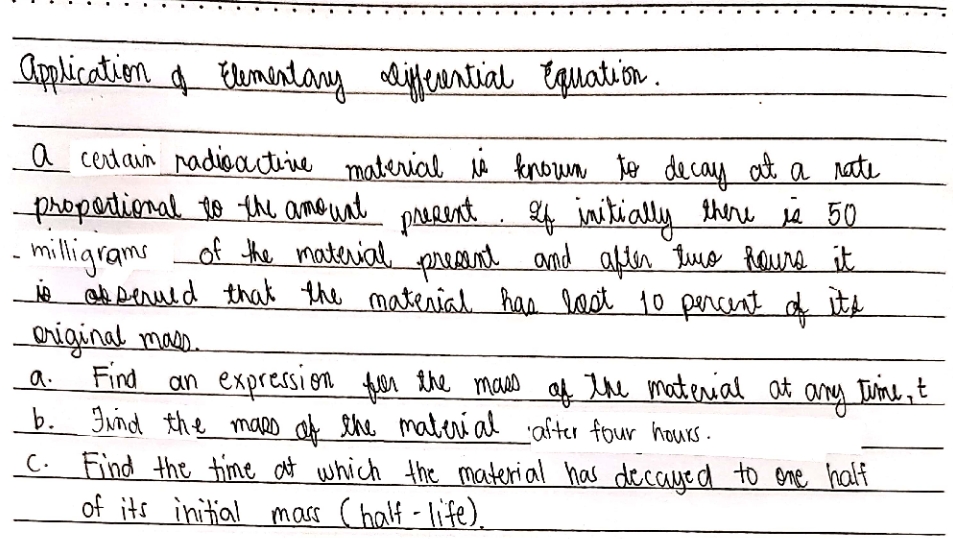 Application of Elementary Differential Equation.
A certain radioactive material is known to decay at a rate
proportional to the amount present. If initially there is 50
milligrams of the material present and after two hours it
is observed that the material has lost 10 percent of its
original mass.
a. Find an expression for the mass of the material at any time, t
b. Find the mass of the material after four hours.
c. Find the time at which the material has decayed to one half
of its initial mass (half-life).